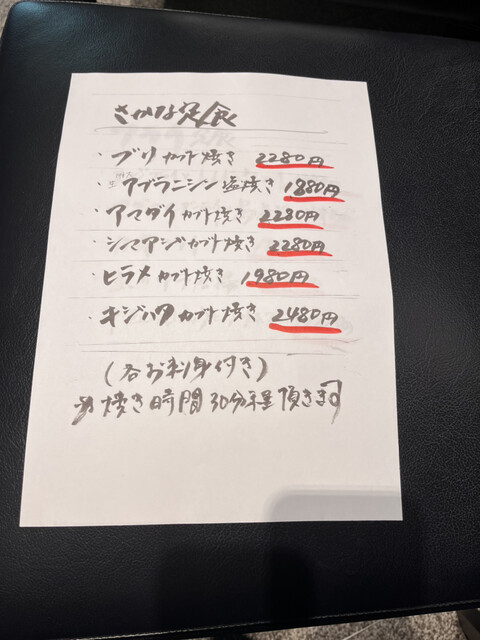 さかな定食
・ブリカブト焼き 2280円
・アブラニシン塩焼き 1880円
・アマダイカブト焼き 2280円
・シマアジカブト焼き 2280円
・ヒラメカブト焼き 1980円
・キジハタカブト焼き 2480円
(各お刺身付き)
※焼き時間30分程頂きます